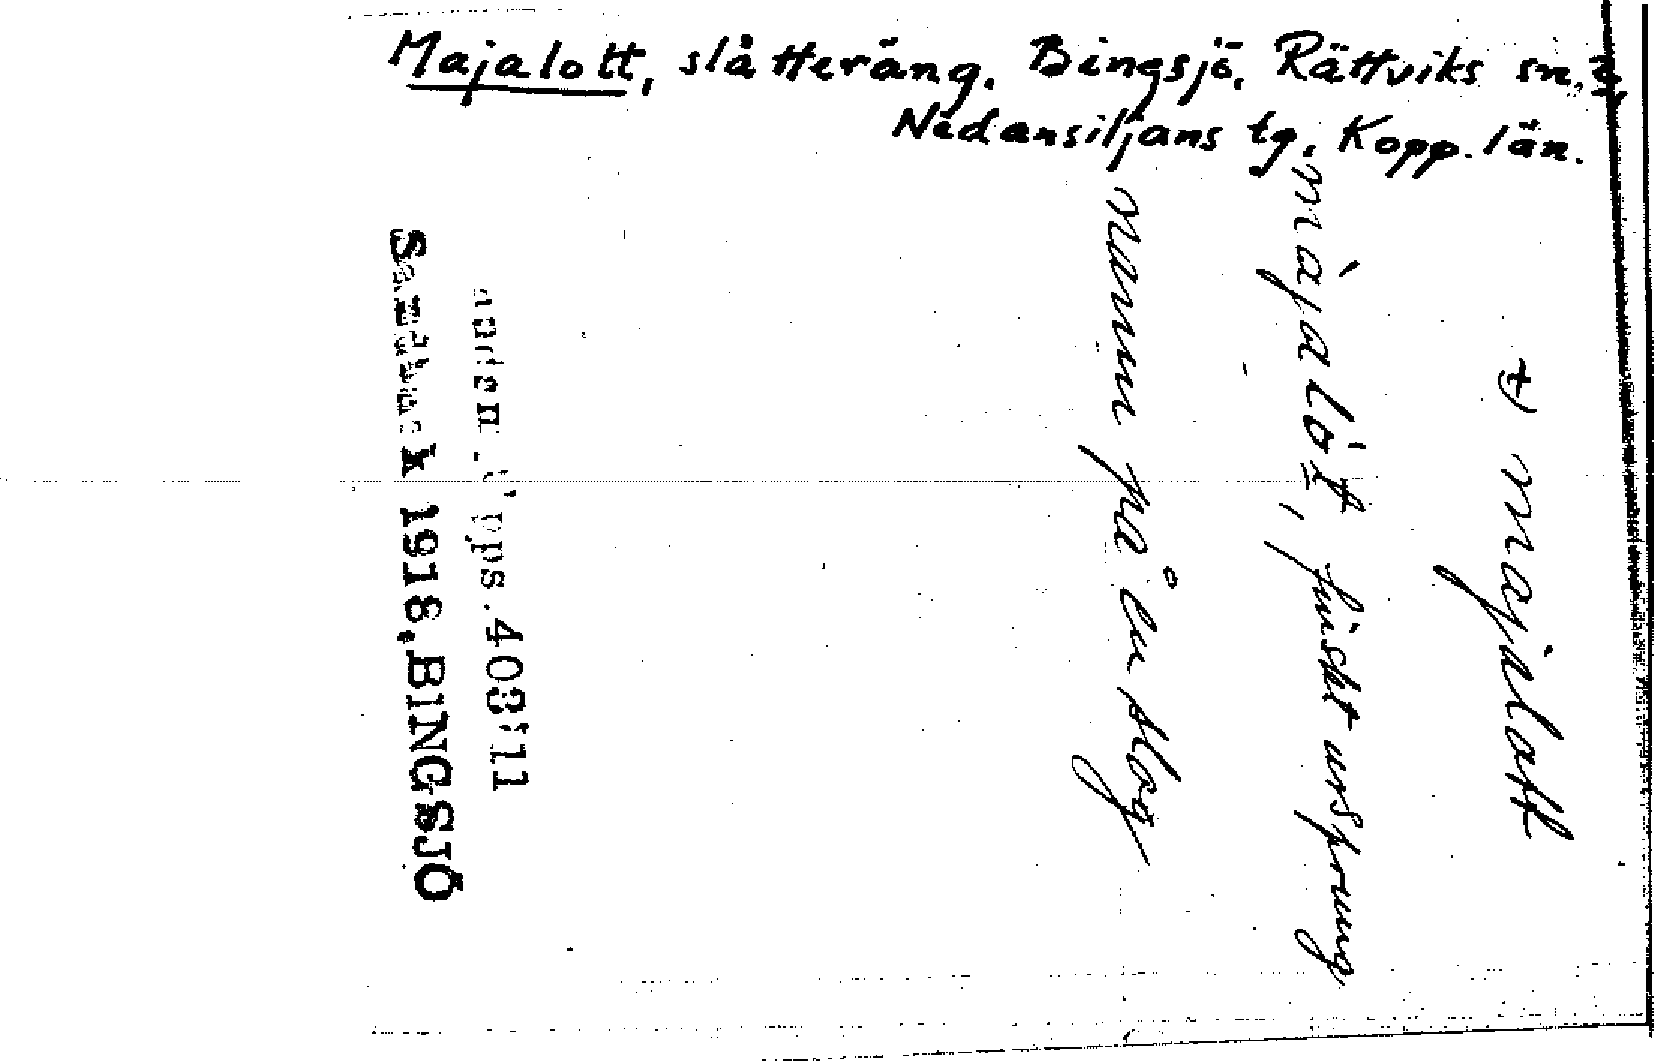 Majalott, slåtteräng. Bingsjö, Rättviks sn,
Nedansiljans tg, Kopp. län.
majalott
májalòt, finskt ursprung
namn på en slog
Ups. 403:11
1918. BINGSJÖ